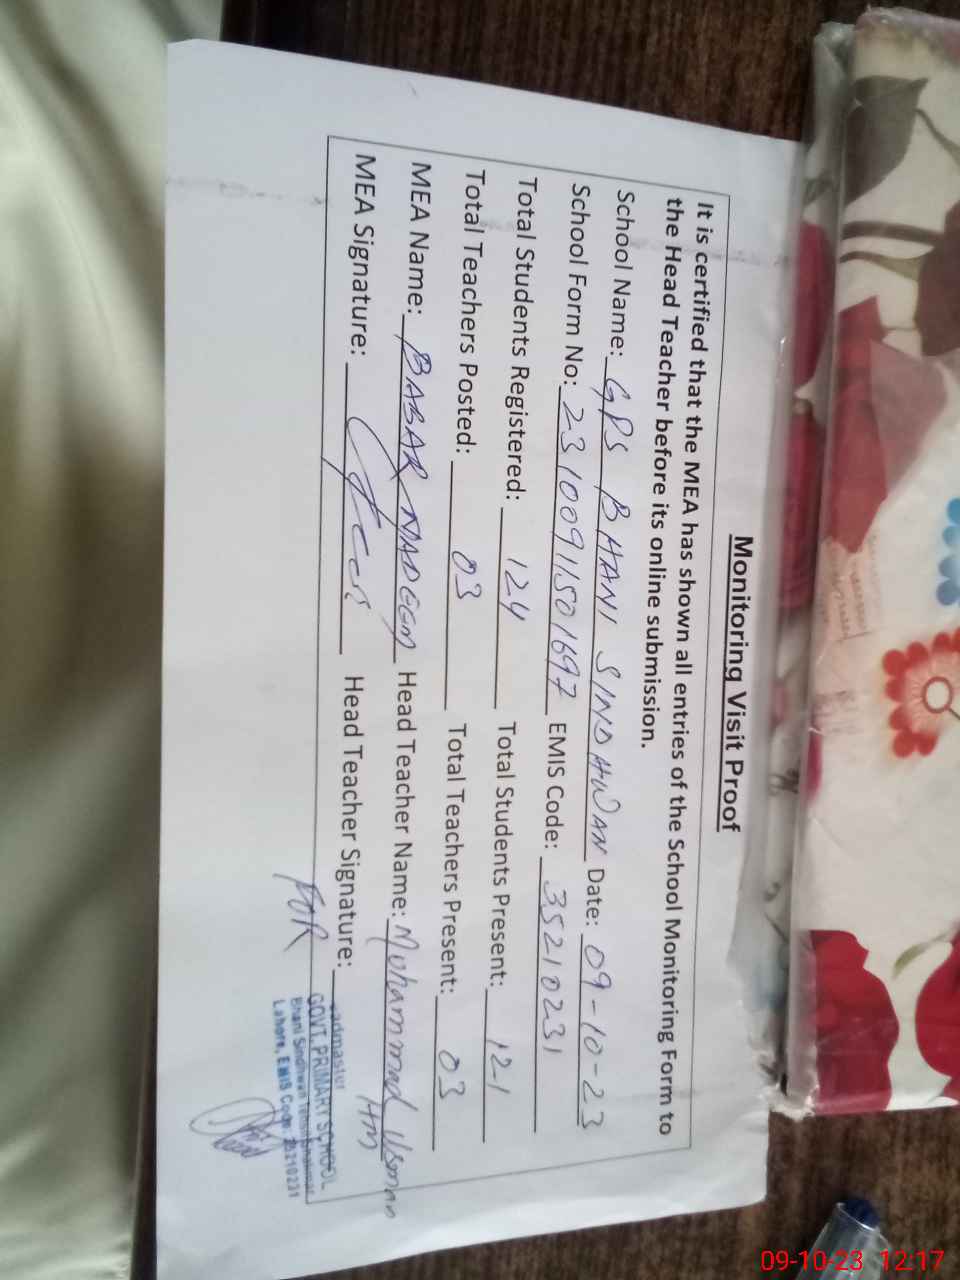 Monitoring Visit Proof
It is certified that the MEA has shown all entries of the School Monitoring Form to
the Head Teacher before its online submission.
School Name: GPS BHANI SINDHWAN Date: 09-10-23
School Form No: 23100911501697 EMIS Code: 35210231
Total Students Registered: 124 Total Students Present: 121
Total Teachers Posted: 03 Total Teachers Present: 03
MEA Name: BABAR NADEEM Head Teacher Name: Mohammad Usman
HM
MEA Signature: Head Teacher Signature:
FOR
GOVT. PRIMARY SCHOOL
Bhani Sindhwan
Lahore, EMIS Code
09-10-23 12:17